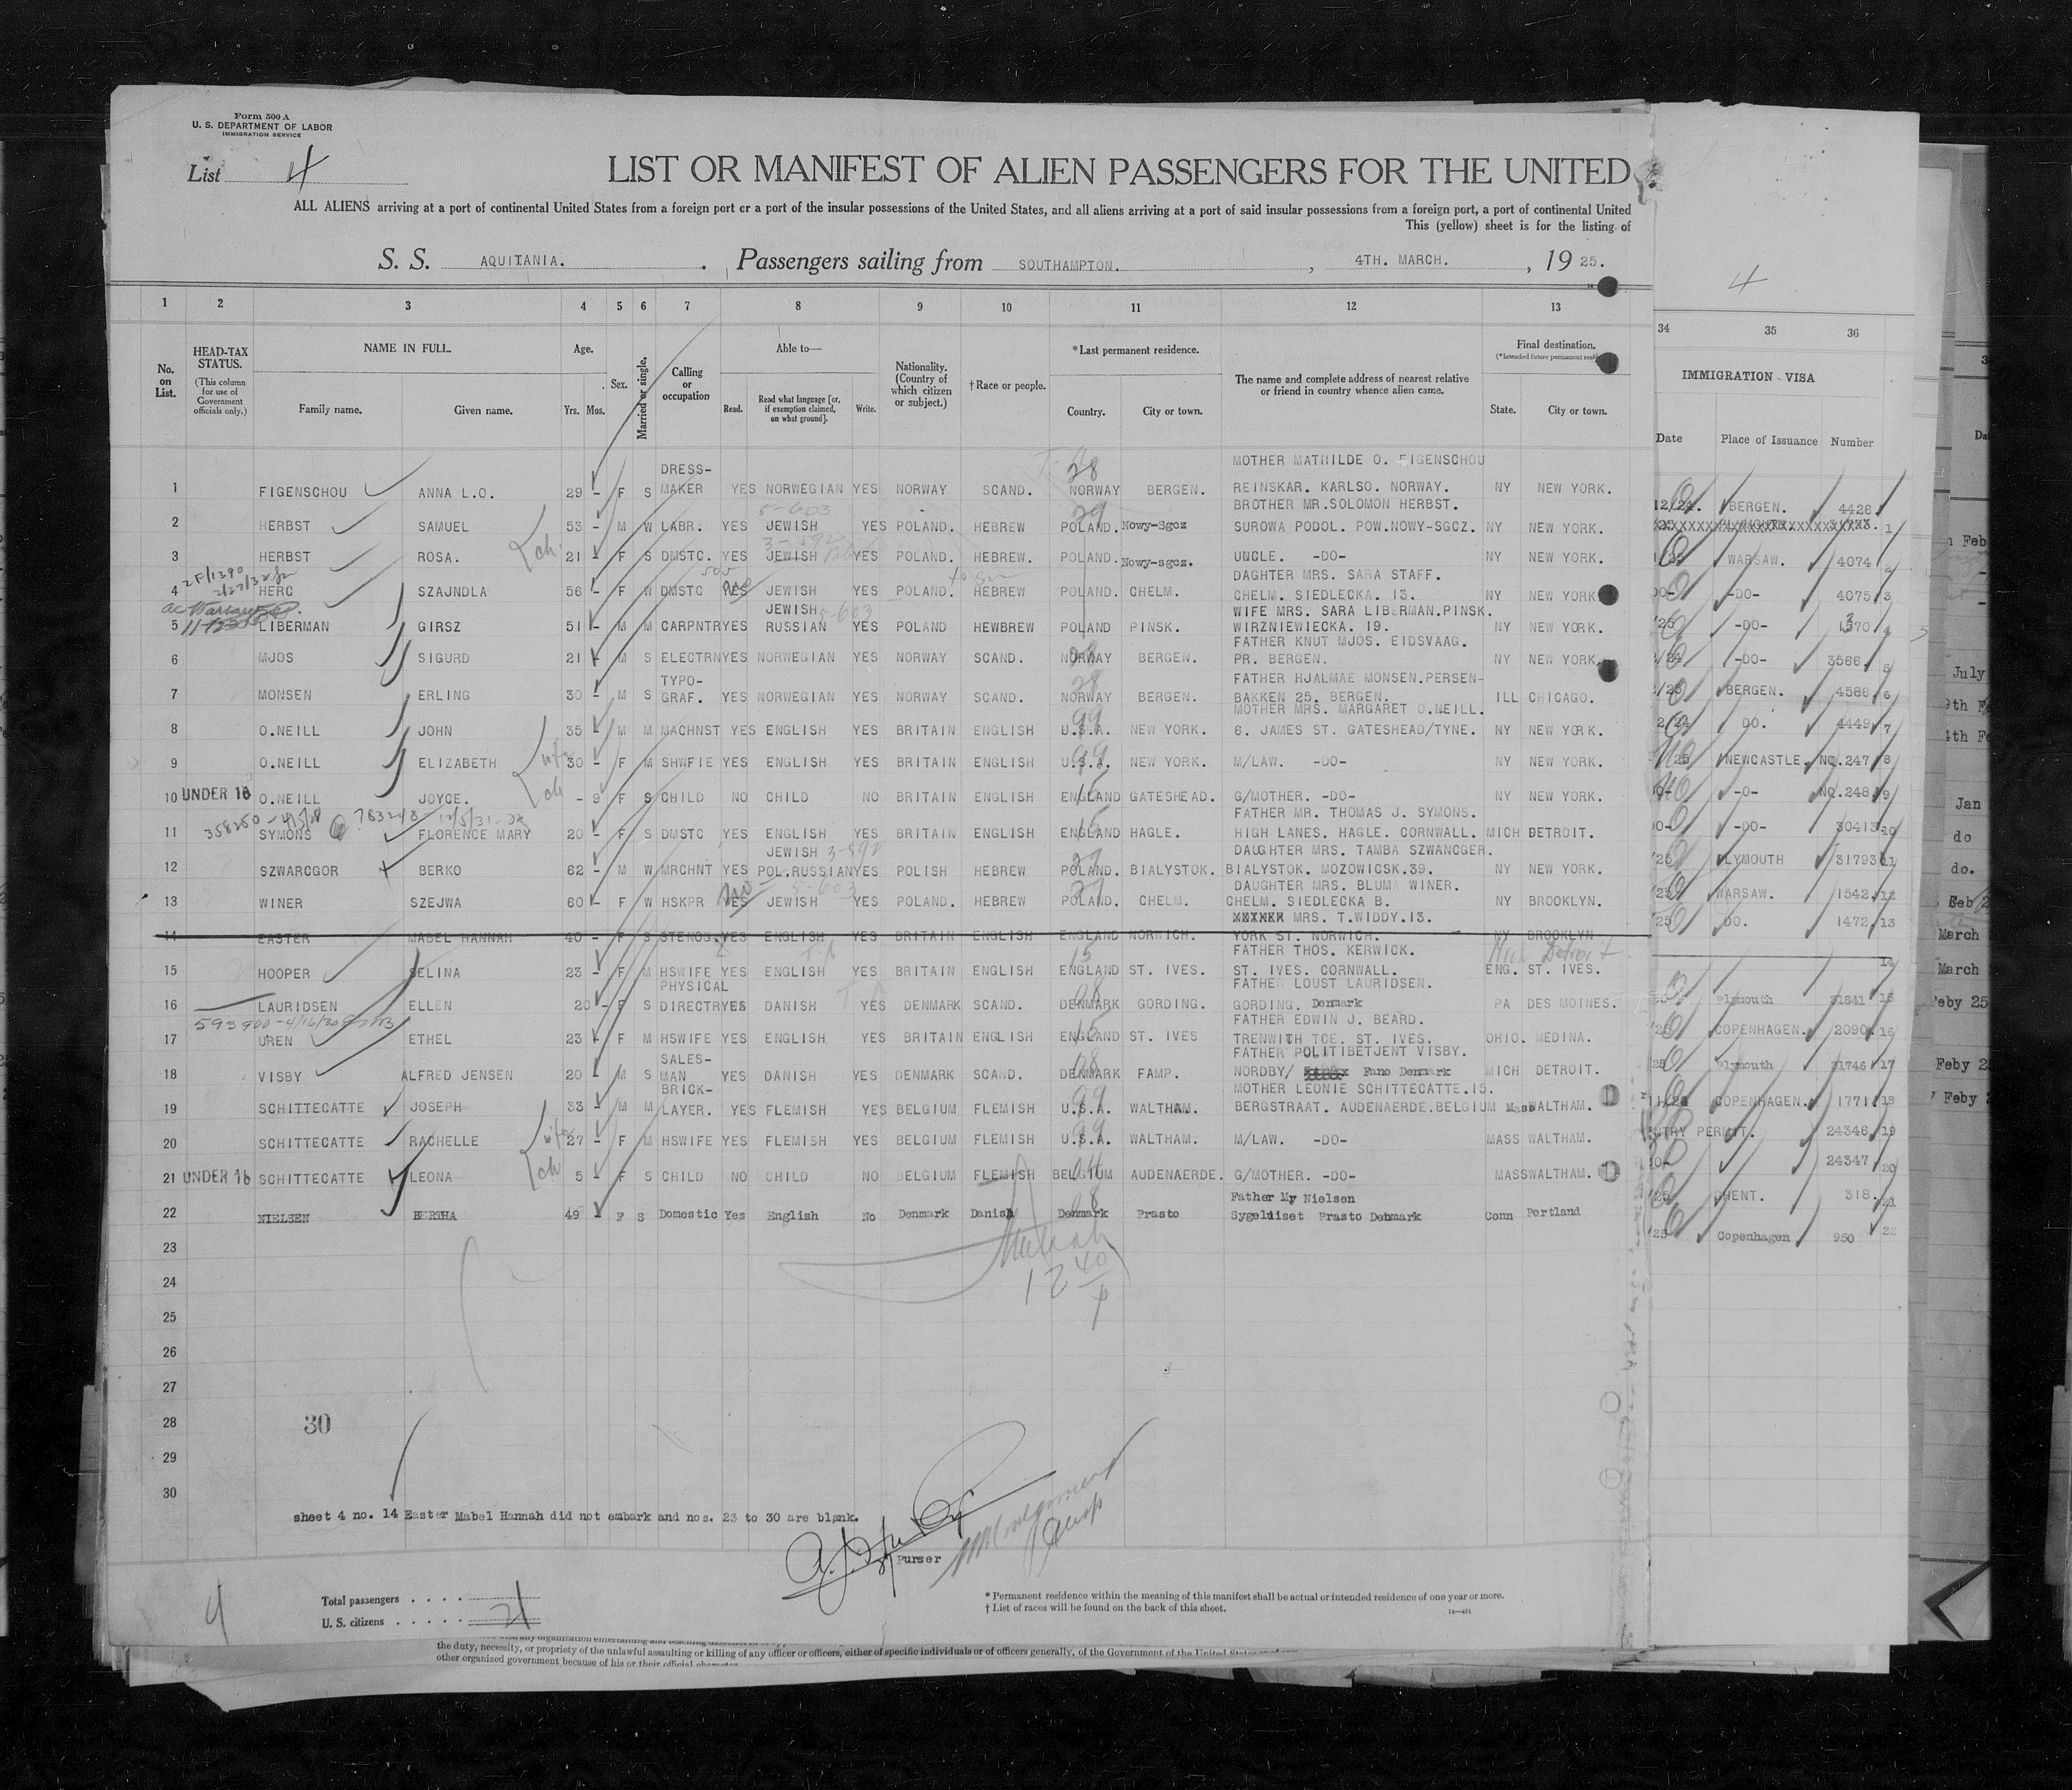 Form 500 A
U. S. DEPARTMENT OF LABOR
IMMIGRATION SERVICE
List 4
LIST OR MANIFEST OF ALIEN PASSENGERS FOR THE UNITED
ALL ALIENS arriving at a port of continental United States from a foreign port or a port of the insular possessions of the United States, and all aliens arriving at a port of said insular possessions from a foreign port, a port of continental United
This (yellow) sheet is for the listing of
S. S. AQUITANIA. Passengers sailing from SOUTHAMPTON. , 4TH. MARCH. , 19 25.
4
1 2 3 4 5 6 7 8 9 10 11 12 13 34 35 36
No. on List.
HEAD-TAX STATUS.
(This column for use of Government officials only.)
NAME IN FULL.
Family name. Given name.
Age.
Yrs. Mos.
Sex.
Married or single.
Calling or occupation
Able to—
Read. Read what language [or, if exemption claimed, on what ground]. Write.
Nationality. (Country of which citizen or subject.)
† Race or people.
*Last permanent residence.
Country. City or town.
The name and complete address of nearest relative or friend in country whence alien came.
Final destination.
State. City or town.
IMMIGRATION VISA
Date Place of Issuance Number
DRESS- MOTHER MATHILDE O. FIGENSCHOU
1 FIGENSCHOU ANNA L.O. 29 - F S MAKER YES NORWEGIAN YES NORWAY SCAND. NORWAY BERGEN. REINSKAR. KARLSO. NORWAY. NY NEW YORK.
BROTHER MR.SOLOMON HERBST.
2 HERBST SAMUEL 53 - M W LABR. YES JEWISH YES POLAND. HEBREW POLAND. Nowy-Sgcz SUROWA PODOL. POW.NOWY-SGCZ. NY NEW YORK.
3 HERBST ROSA. 21 - F S DMSTC. YES JEWISH YES POLAND. HEBREW. POLAND. Nowy-sgcz. UNCLE. -DO- NY NEW YORK.
DAGHTER MRS. SARA STAFF.
4 HERC SZAJNDLA 56 - F W DMSTC YES JEWISH YES POLAND. HEBREW POLAND. CHELM. CHELM. SIEDLECKA. 13. NY NEW YORK
JEWISH WIFE MRS. SARA LIBERMAN.PINSK.
5 LIBERMAN GIRSZ 51 - M M CARPNTR YES RUSSIAN YES POLAND HEWBREW POLAND PINSK. WIRZNIEWIECKA. 19. NY NEW YORK.
FATHER KNUT MJOS. EIDSVAAG.
6 MJOS SIGURD 21 - M S ELECTRN YES NORWEGIAN YES NORWAY SCAND. NORWAY BERGEN. PR. BERGEN. NY NEW YORK.
TYPO- FATHER HJALMAE MONSEN.PERSEN-
7 MONSEN ERLING 30 - M S GRAF. YES NORWEGIAN YES NORWAY SCAND. NORWAY BERGEN. BAKKEN 25. BERGEN. ILL CHICAGO.
MOTHER MRS. MARGARET O.NEILL.
8 O.NEILL JOHN 35 - M M MACHNST YES ENGLISH YES BRITAIN ENGLISH U.S.A. NEW YORK. 6. JAMES ST. GATESHEAD/TYNE. NY NEW YORK.
9 O.NEILL ELIZABETH 30 - F M SHWFIE YES ENGLISH YES BRITAIN ENGLISH U.S.A. NEW YORK. M/LAW. -DO- NY NEW YORK.
10 UNDER 16 O.NEILL JOYCE. - 9 F S CHILD NO CHILD NO BRITAIN ENGLISH ENGLAND GATESHEAD. G/MOTHER. -DO- NY NEW YORK.
FATHER MR. THOMAS J. SYMONS.
11 SYMONS FLORENCE MARY 20 - F S DMSTC YES ENGLISH YES BRITAIN ENGLISH ENGLAND HAGLE. HIGH LANES. HAGLE. CORNWALL. MICH DETROIT.
JEWISH DAUGHTER MRS. TAMBA SZWANCGER.
12 SZWARCGOR BERKO 62 - M W MRCHNT YES POL.RUSSIAN YES POLISH HEBREW POLAND. BIALYSTOK. BIALYSTOK. MOZOWICSK.39. NY NEW YORK.
DAUGHTER MRS. BLUMA WINER.
13 WINER SZEJWA 60 - F W HSKPR YES JEWISH YES POLAND. HEBREW POLAND. CHELM. CHELM. SIEDLECKA B. NY BROOKLYN.
MRS. T.WIDDY.13.
14 EASTER MABEL HANNAH 40 - F S STENOG. YES ENGLISH YES BRITAIN ENGLISH ENGLAND NORWICH. YORK ST. NORWICH. NY BROOKLYN
FATHER THOS. KERWICK. Mich Detroit
15 HOOPER SELINA 23 - F M HSWIFE YES ENGLISH YES BRITAIN ENGLISH ENGLAND ST. IVES. ST. IVES. CORNWALL. ENG. ST. IVES.
PHYSICAL FATHER LOUST LAURIDSEN.
16 LAURIDSEN ELLEN 20 - F S DIRECTR YES DANISH YES DENMARK SCAND. DENMARK GORDING. GORDING. Denmark PA DES MOINES.
FATHER EDWIN J. BEARD.
17 UREN ETHEL 23 - F M HSWIFE YES ENGLISH YES BRITAIN ENGLISH ENGLAND ST. IVES TRENWITH TCE. ST. IVES. OHIO. MEDINA.
SALES- FATHER POLITIBETJENT VISBY.
18 VISBY ALFRED JENSEN 20 - M S MAN YES DANISH YES DENMARK SCAND. DENMARK FAMP. NORDBY/ Fano Denmark MICH DETROIT.
BRICK- MOTHER LEONIE SCHITTECATTE.15.
19 SCHITTECATTE JOSEPH 33 - M M LAYER. YES FLEMISH YES BELGIUM FLEMISH U.S.A. WALTHAM. BERGSTRAAT. AUDENAERDE.BELGIUM Mass WALTHAM.
20 SCHITTECATTE RACHELLE 27 - F M HSWIFE YES FLEMISH YES BELGIUM FLEMISH U.S.A. WALTHAM. M/LAW. -DO- MASS WALTHAM.
21 UNDER 16 SCHITTECATTE LEONA 5 - F S CHILD NO CHILD NO BELGIUM FLEMISH BELGIUM AUDENAERDE. G/MOTHER. -DO- MASS WALTHAM.
Father My Nielsen
22 NIELSEN BERTHA 49 - F S Domestic Yes English No Denmark Danish Denmark Prasto Sygeluiset Prasto Denmark Conn Portland
23
24
25
26
27
28
29
30
30
12 40
BERGEN. 4426
WARSAW. 4074 2
-DO- 4075 3
-DO- 1370 4
-DO- 3566 5
BERGEN. 4586 6
DO. 4449 7
NEWCASTLE. NO.247 8
-O- NO.248 9
-DO- 30413 10
PLYMOUTH 31793 11
WARSAW. 1542 12
DO. 1472 13
14
Plymouth 31841 15
COPENHAGEN. 2090 16
Plymouth 31746 17
COPENHAGEN. 1771 18
PERMIT. 24346 19
24347 20
GHENT. 318. 21
Copenhagen 950 22
sheet 4 no. 14 Easter Mabel Hannah did not embark and nos. 23 to 30 are blank.
Purser
4
Total passengers . . . .
U. S. citizens . . . . . 21
* Permanent residence within the meaning of this manifest shall be actual or intended residence of one year or more.
† List of races will be found on the back of this sheet.
the duty, necessity, or propriety of the unlawful assaulting or killing of any officer or officers, either of specific individuals or of officers generally, of the Government of the United States
other organized government because of his or their official character